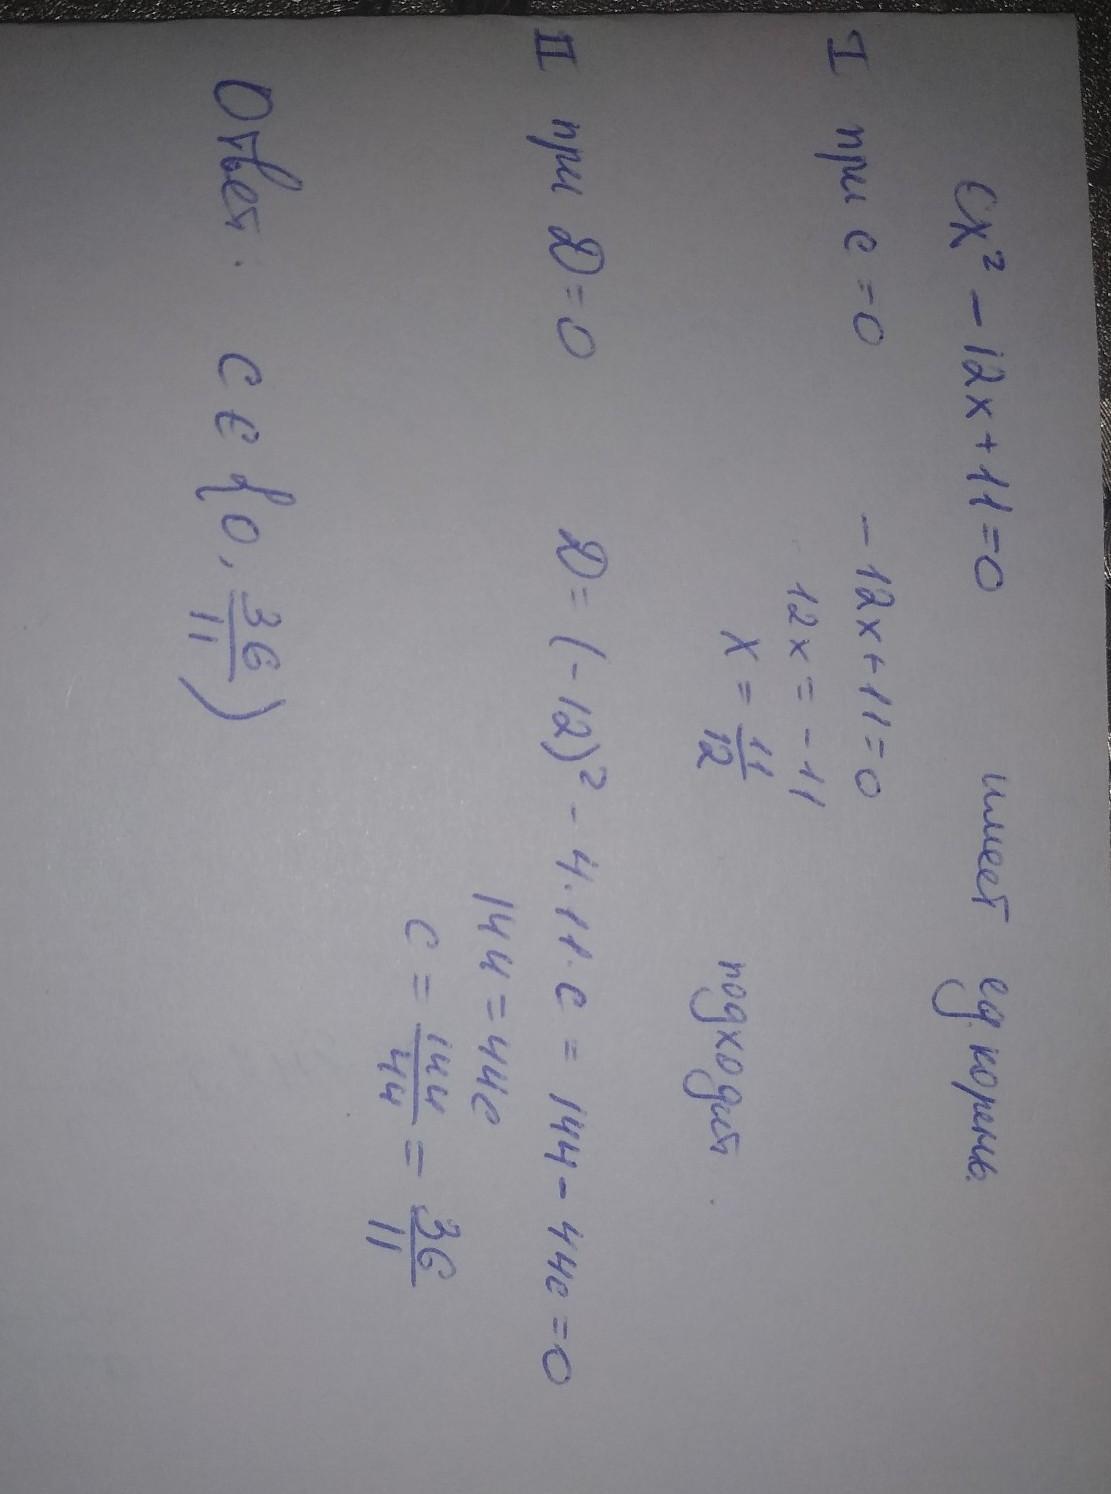 cx² - 12x + 11 = 0 имеет ед. корень.
I при c = 0 - 12x + 11 = 0
12x = - 11
x = 11/12 подходит.
II при D = 0 D = (-12)² - 4 · 11 · c = 144 - 44c = 0
144 = 44c
c = 144/44 = 36/11
Ответ. c ∈ {0, 36/11)